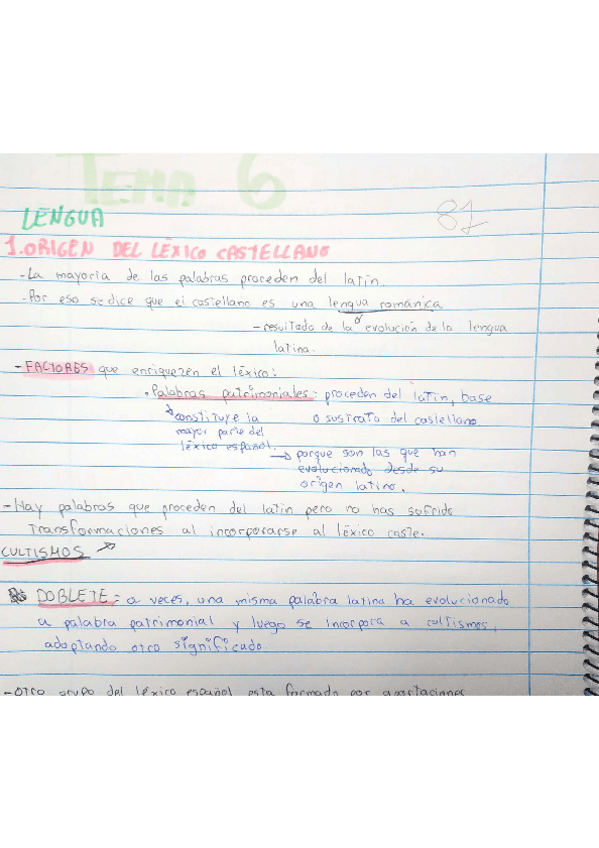 TEMA 6
LENGUA 81
1. ORIGEN DEL LÉXICO CASTELLANO
- La mayoria de las palabras proceden del latín.
- Por eso se dice que el castellano es una lengua románica
- resultado de la evolución de la lengua
latina.
- FACTORES que enriquezen el léxico:
• Palabras patrimoniales: proceden del latín, base
constituye la o sustrato del castellano.
mayor parte del
léxico español. → porque son las que han
evolucionado desde su
origen latino.
- Hay palabras que proceden del latín pero no has sufrido
transformaciones al incorporarse al léxico caste.
CULTISMOS
DOBLETE: a veces, una misma palabra latina ha evolucionado
a palabra patrimonial y luego se incorpora a cultismos,
adoptando otro significado.
- Otro grupo del léxico español esta formado por aportaciones